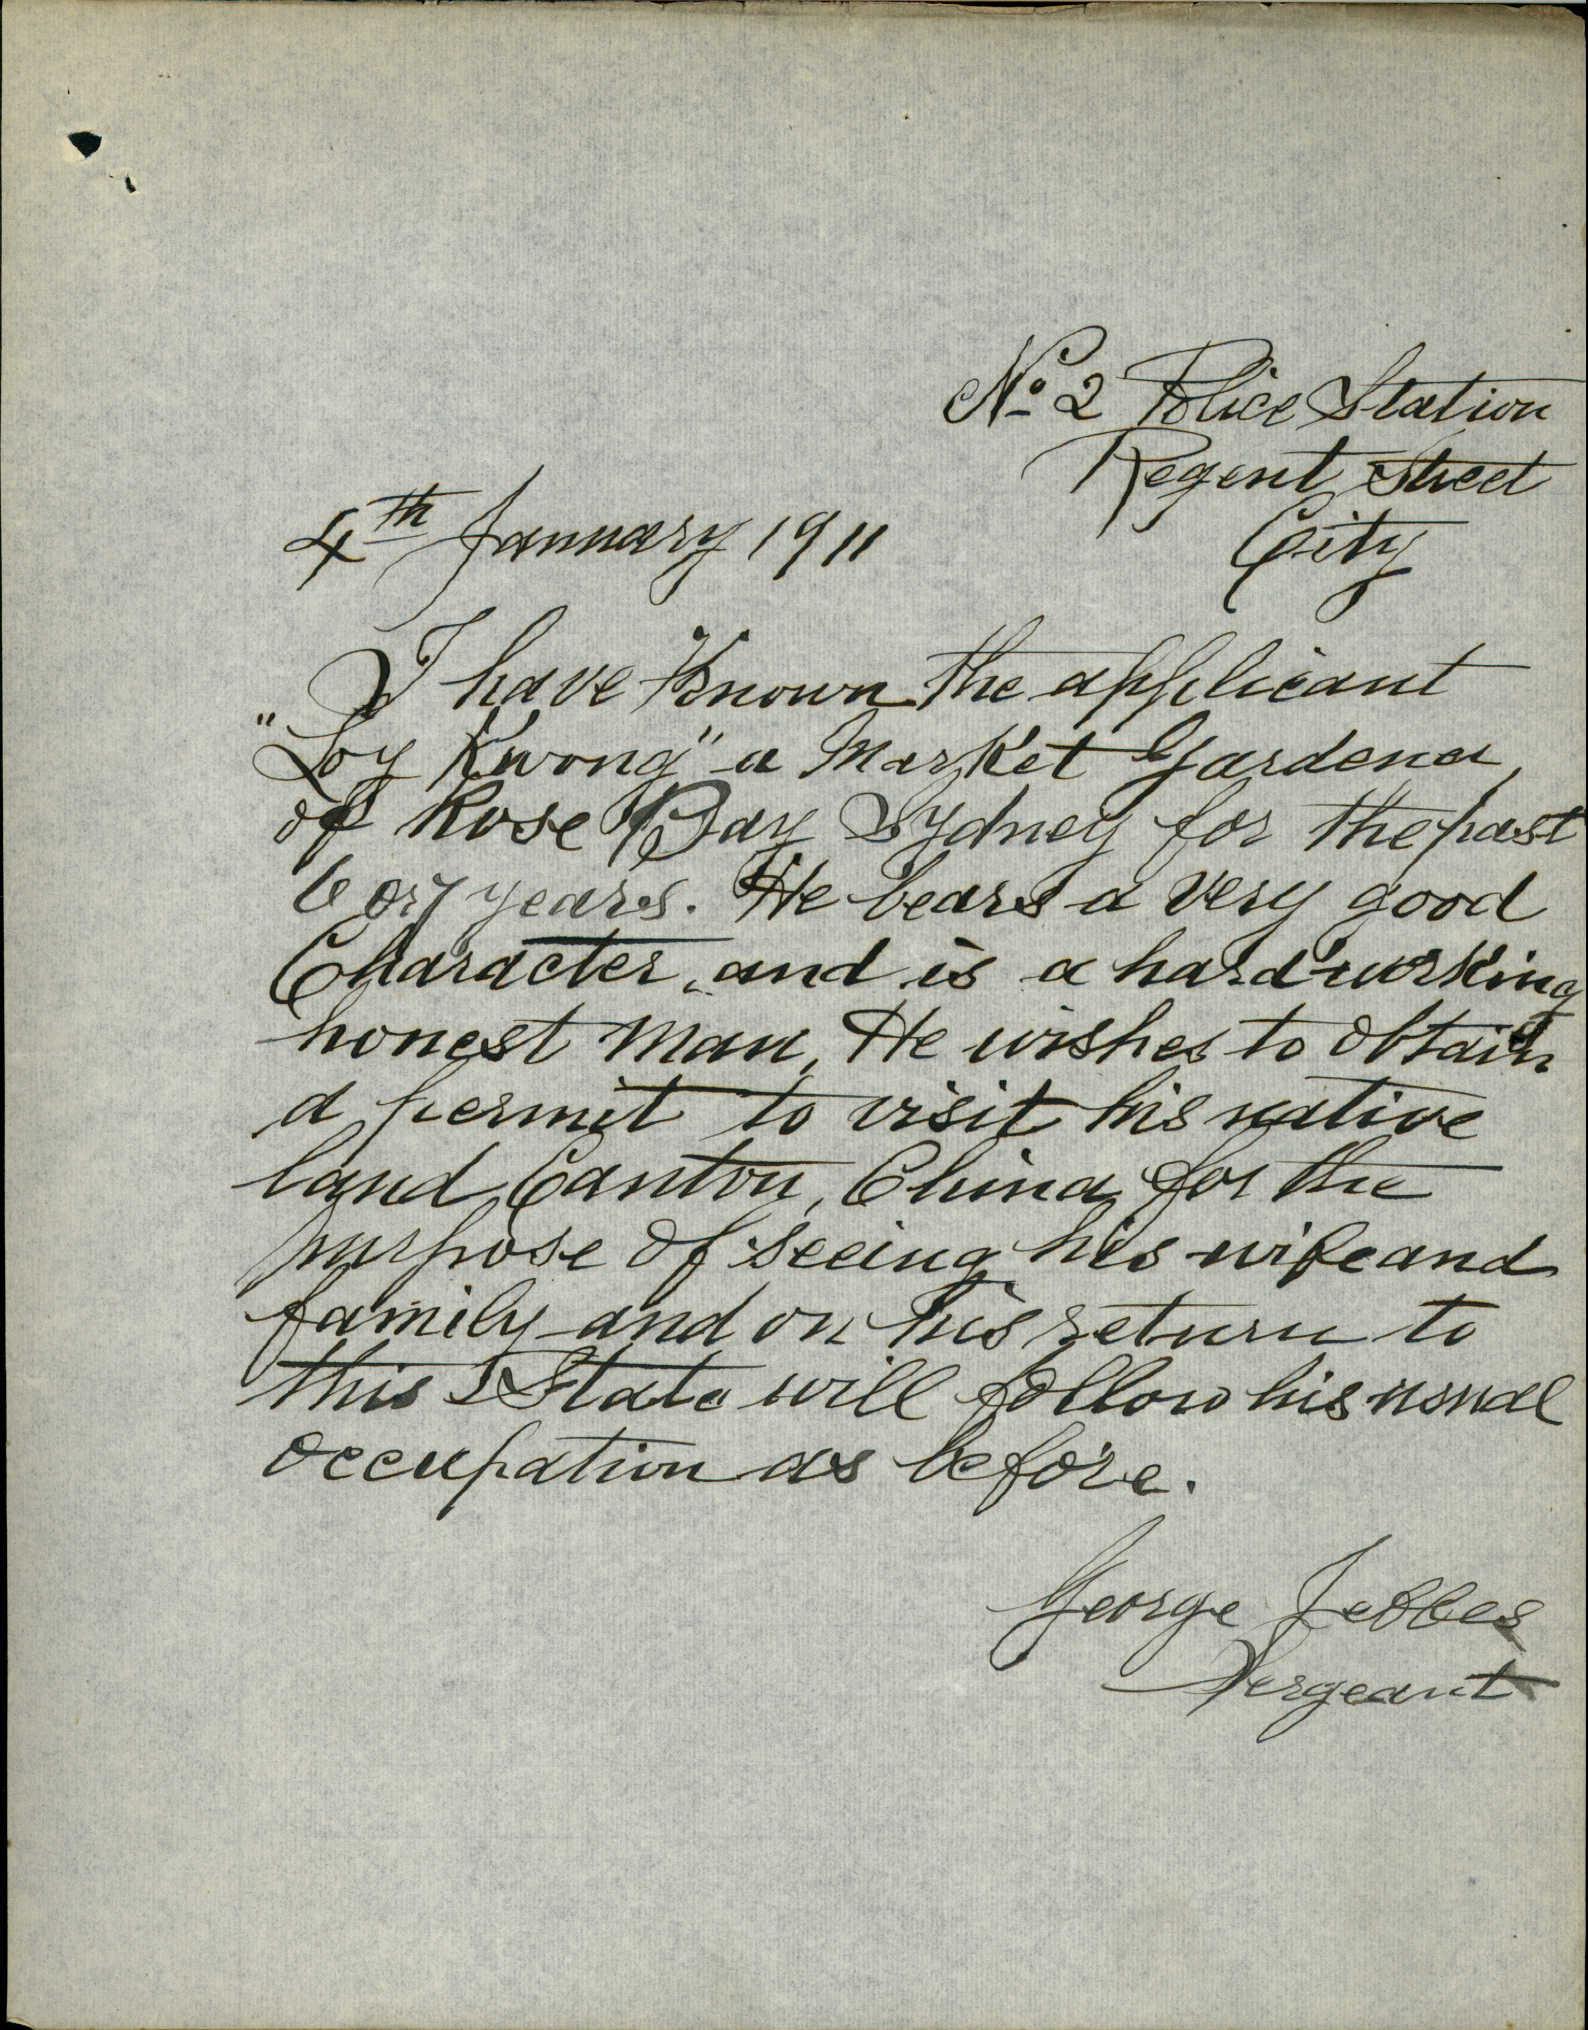 No. 2 Police Station
Regent Street
City
4th January 1911
I have known the applicant
"Loy Kwong" a Market Gardener,
of Rose Bay Sydney for the past
6 or 7 years. He bears a very good
Character, and is a hardworking
honest man, He wishes to obtain
a permit to visit his native
land, Canton, China, for the
purpose of seeing his wife and
family and on his return to
this State will follow his usual
occupation as before.
George
Sergeant